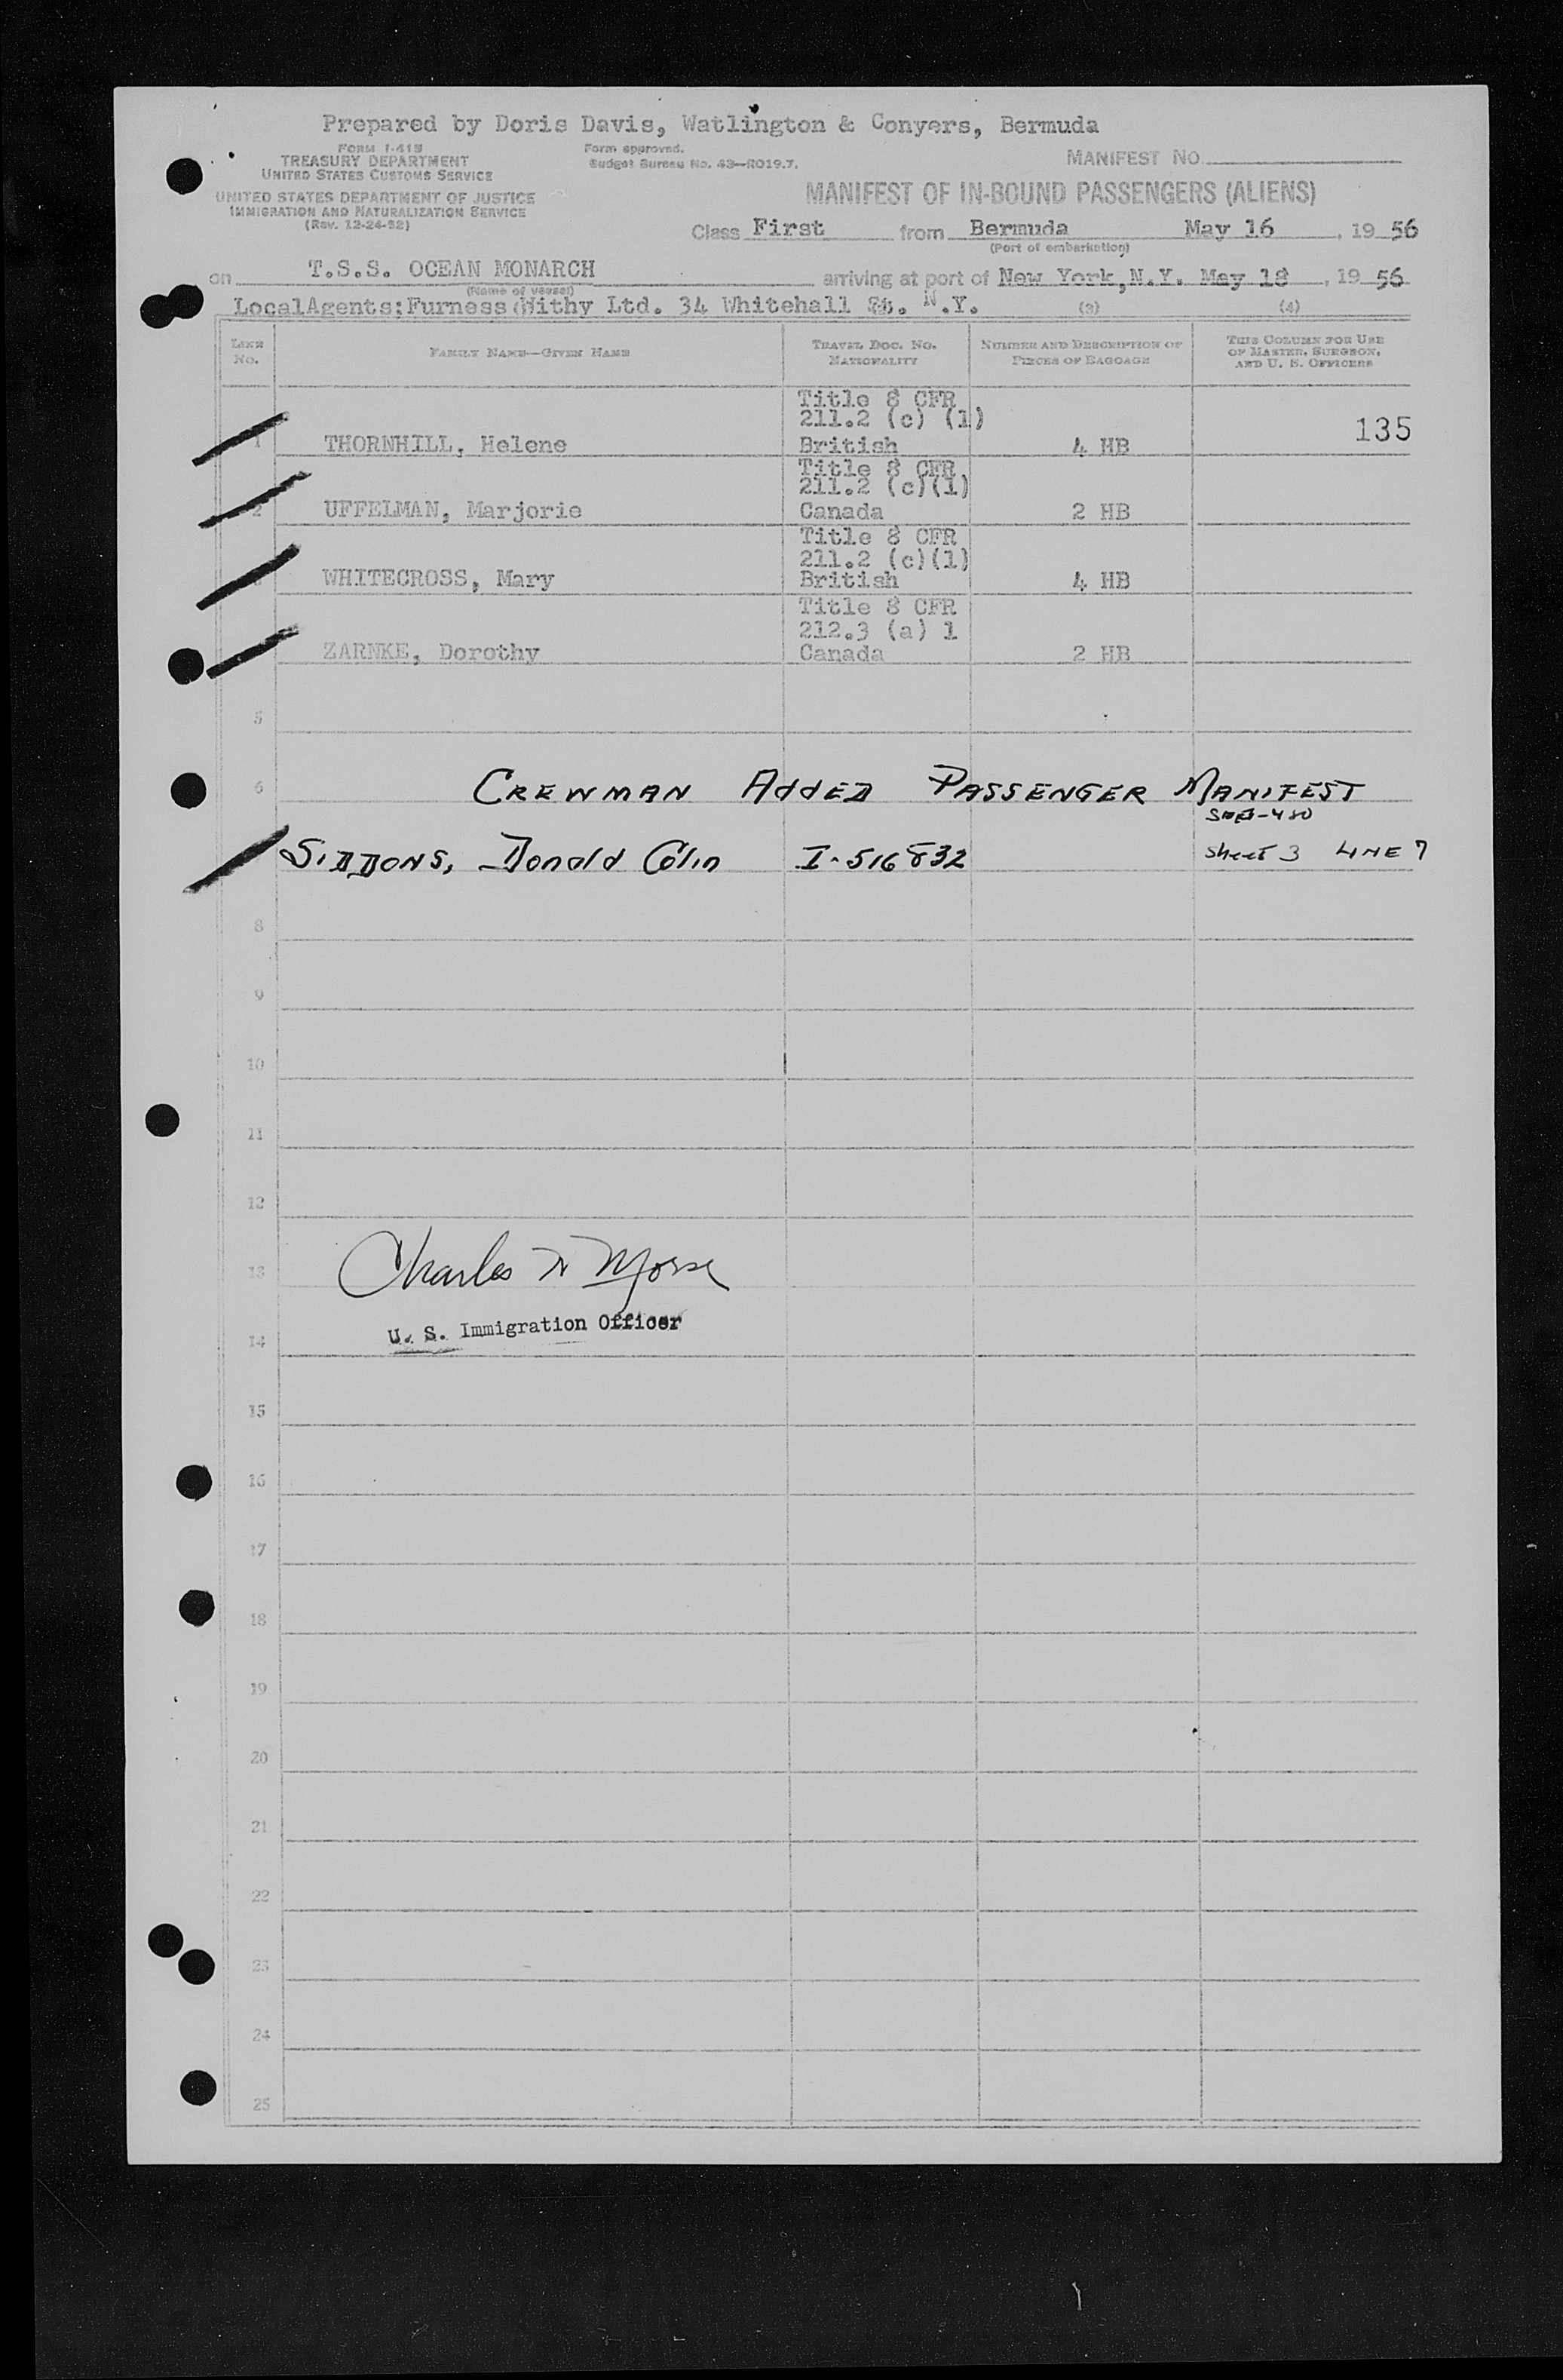 Prepared by Doris Davis, Watlington & Conyers, Bermuda
FORM I-415
TREASURY DEPARTMENT
UNITED STATES CUSTOMS SERVICE
Form approved.
Budget Bureau No. 43—R019.7.
MANIFEST NO.
UNITED STATES DEPARTMENT OF JUSTICE
IMMIGRATION AND NATURALIZATION SERVICE
(Rev. 12-24-52)
MANIFEST OF IN-BOUND PASSENGERS (ALIENS)
Class First from Bermuda May 16, 19 56
(Port of embarkation)
on T.S.S. OCEAN MONARCH arriving at port of New York, N.Y. May 18, 19 56
(Name of vessel)
LocalAgents:Furness Withy Ltd. 34 Whitehall St. N.Y. (3) (4)
LINE No. FAMILY NAME—GIVEN NAME TRAVEL DOC. NO. NATIONALITY NUMBER AND DESCRIPTION OF PIECES OF BAGGAGE THIS COLUMN FOR USE OF MASTER, SURGEON, AND U. S. OFFICERS
Title 8 CFR
211.2 (c) (1)
1 THORNHILL, Helene British 4 HB 135
Title 8 CFR
211.2 (c)(1)
2 UFFELMAN, Marjorie Canada 2 HB
Title 8 CFR
211.2 (c)(1)
WHITECROSS, Mary British 4 HB
Title 8 CFR
212.3 (a) 1
ZARNKE, Dorothy Canada 2 HB
5
6 CREWMAN ADDED PASSENGER MANIFEST
SIDDONS, Donald Colin I-516832 Sheet 3 LINE 7
8
9
10
11
12
13 Charles W Morse
14 U. S. Immigration Officer
15
16
17
18
19
20
21
22
23
24
25